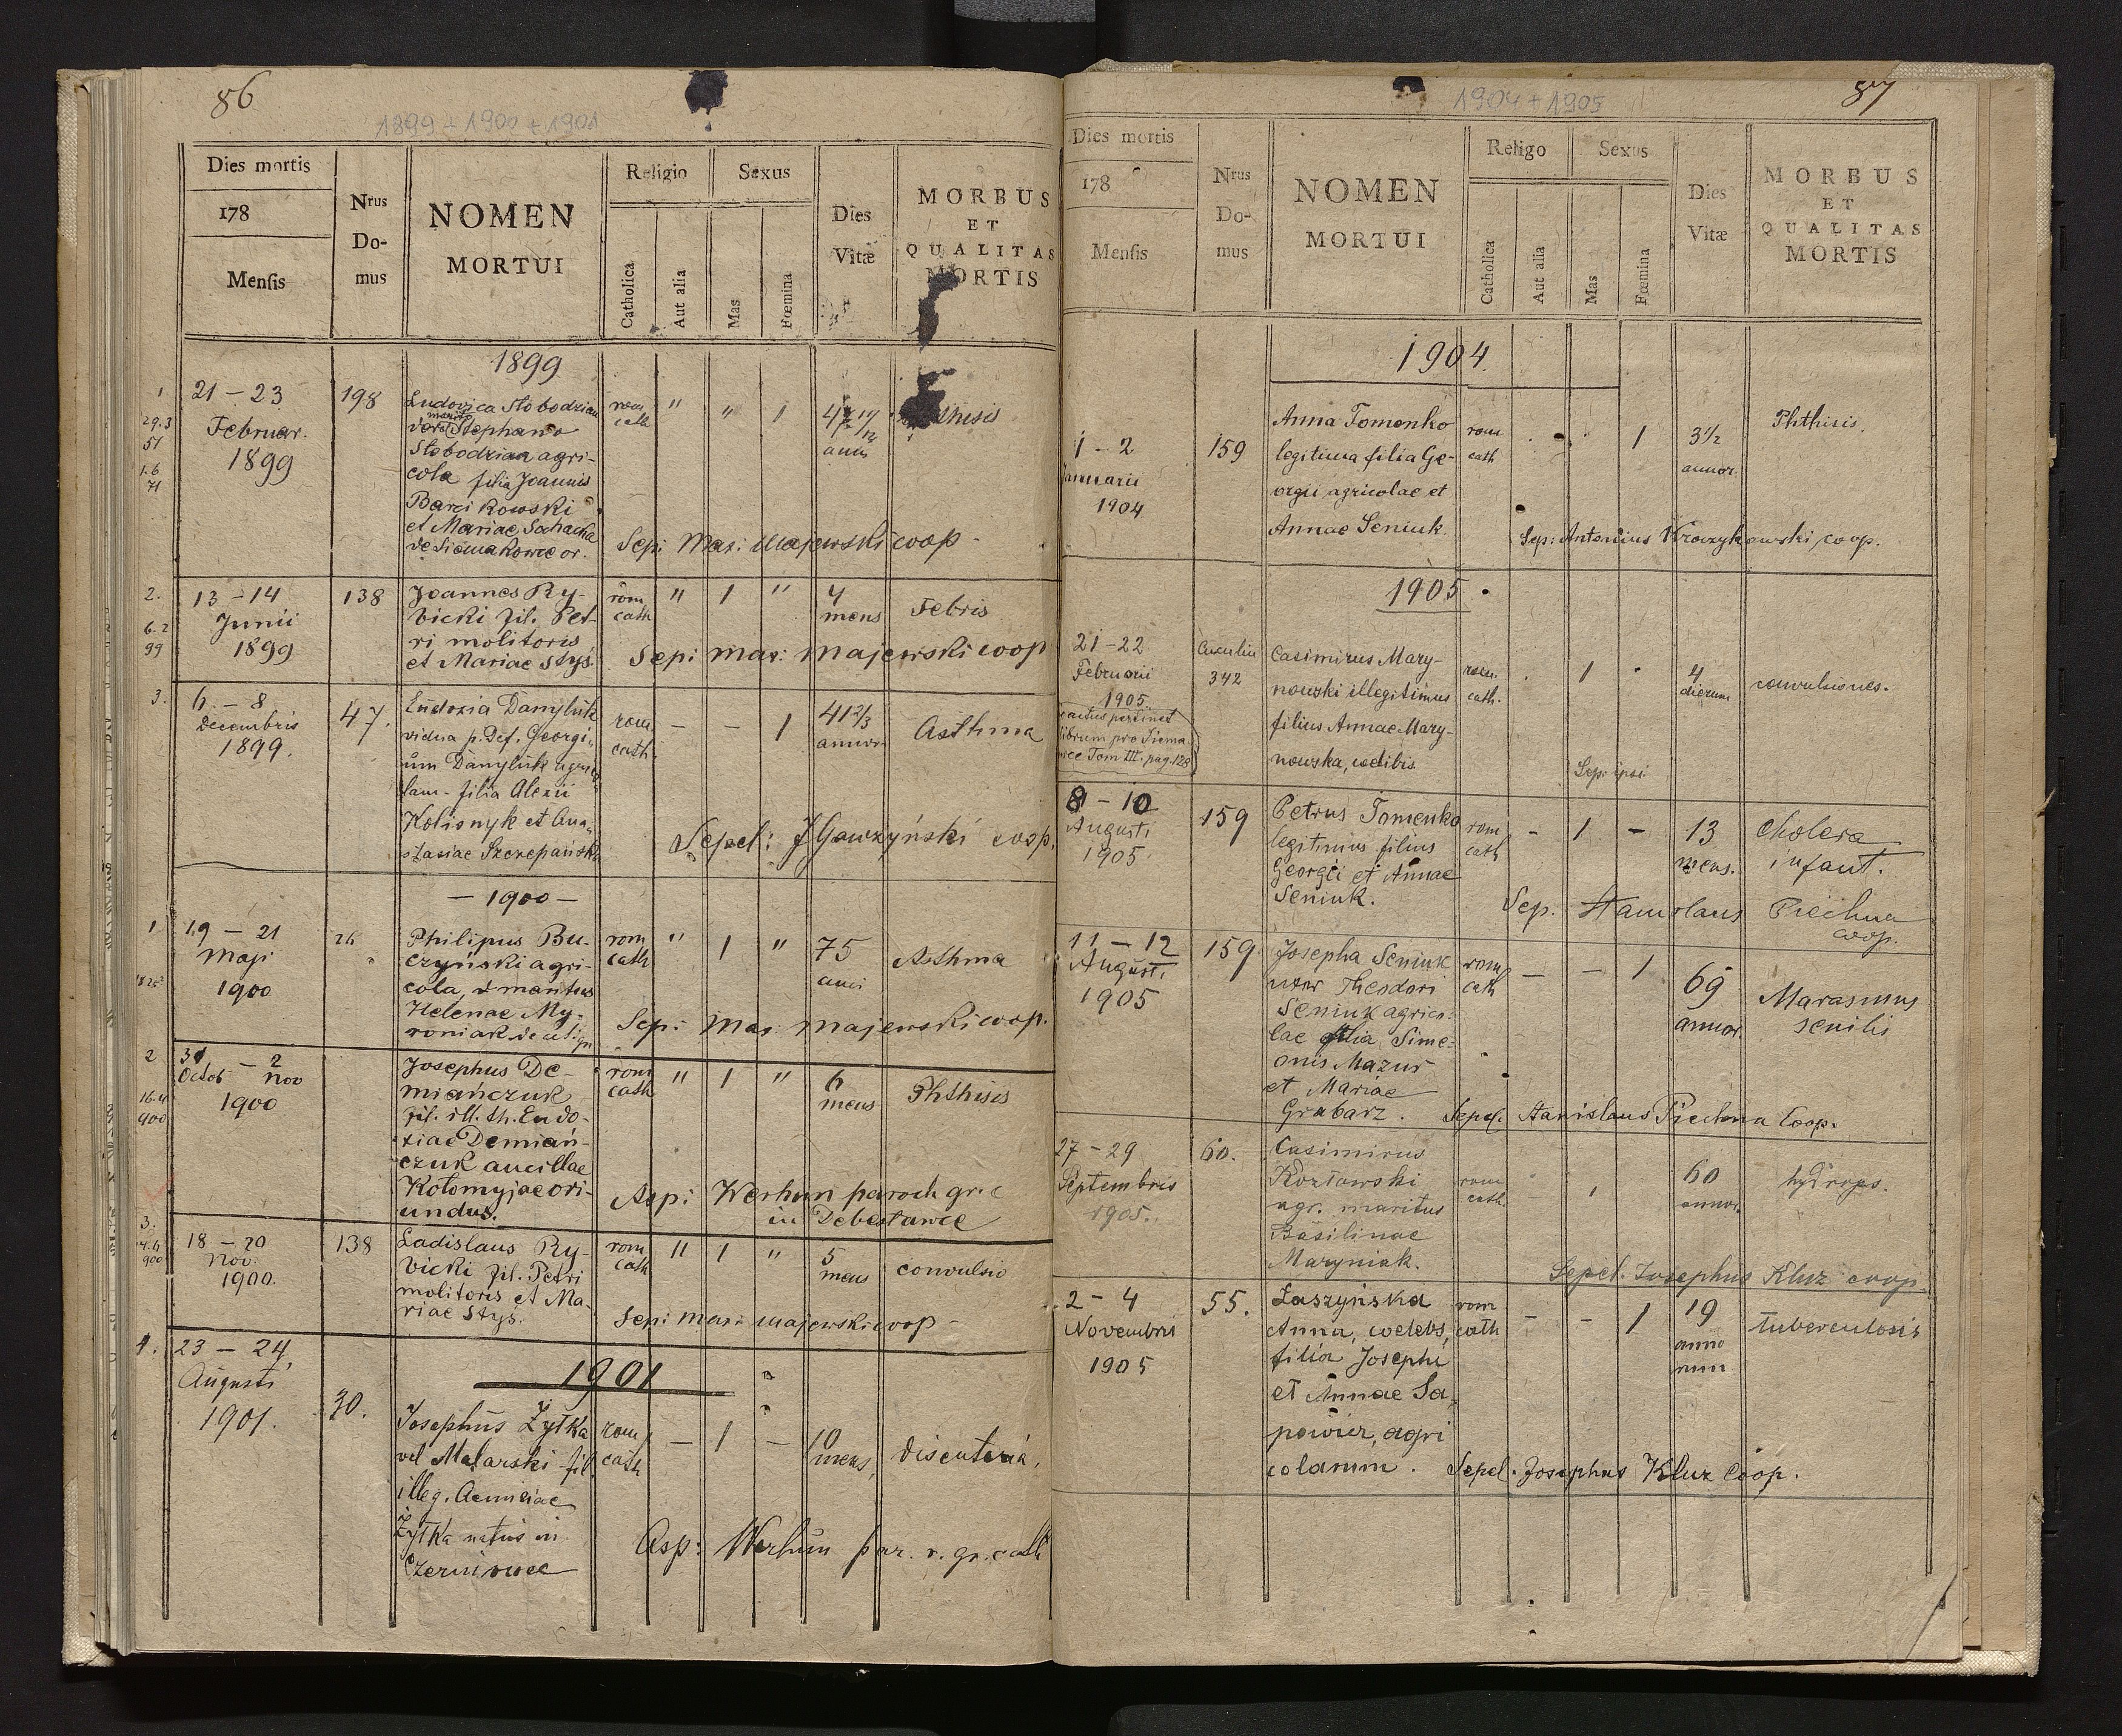 86
1899 + 1900 + 1901
Dies mortis
178
Mensis
Nrus
Do-
mus
NOMEN
MORTUI
Religio
Catholica
Aut alia
Sexus
Mas
Fœmina
Dies
Vitæ
MORBUS
ET
QUALITAS
MORTIS
1899
1
29.3
51
1.6
71
21 – 23
Februar.
1899
198
Ludovica Słobodzian
vere Stephano
Słobodzian agri-
cola filia Joannis
Barcikowski
et Mariae Sochacka
de Siemakowce or.
rom
cath
"
"
1
anni
Sepi Mar: Majewski coop
2.
6.2
99
13 – 14
Junii
1899
138
Joannes Ry-
bicki fil. Pet-
ri molitoris
et Mariae Styś
rom
cath
"
1
"
4
mens
Febris
Sepi mar: Majewski coop
3.
6. – 8
Decembris
1899.
47.
Eudoxia Danyluk
vidua p. Def. Georgi-
um Danyluk agrico
lam - filia Alexii
Kolisnyk et Ana-
stasiae Szczepańska
rom
cath.
–
–
1
41 2/3
annor
Asthma
Sepel: J Gawzyński coop.
– 1900 –
1
19 – 21
Maji
1900
26
Philipus Bu-
czyński agri-
cola, d maritus
Helenae My-
roniak de
rom
cath
"
1
"
75
anni
Asthma
Sepi: Mar: Majewski coop.
2
16.4
900
31 – 2
Octob Nov
1900
Josephus De-
miańczuk
fil. ill. th. Eudo-
xiae Demiań-
czuk ancillae
Kołomyjae ori-
undus.
rom
cath
"
1
"
6
mens
Phthisis
Aspi: Werhun paroch gr. c
in Debesławce
3.
14.4
900
18 – 20
Nov.
1900.
138
Ladislaus Ry-
bicki fil. Petri
molitoris et Ma-
riae Styś.
rom
cath
"
1
"
5
mens
convulsio
Sepi mar: Majewski coop –
1.
23 – 24
Augusti
1901.
30.
1901
Josephus Żytka
vel Malarski fil.
illeg. Anniae
Żytka natus in
Czerniowce
rom
cath
–
1
–
10
mens,
disenteria,
Asp: Werhun par. r. gr. cath
87
1904 + 1905
Dies mortis
178
Mensis
Nrus
Do-
mus
NOMEN
MORTUI
Religo
Catholica
Aut alia
Sexus
Mas
Fœmina
Dies
Vitæ
MORBUS
ET
QUALITAS
MORTIS
1904.
1 – 2
Januarii
1904
159
Anna Tomenko
legitima filia Ge-
orgii agricolae et
Annae Seniuk.
rom
cath
1
3 1/2
annor.
Phthisis.
Sep: Antonius Krarzykowski coop.
1905
21 – 22
Februarii
1905.
342
Casimirus Mary-
nowski illegitimus
filius Annae Mary-
nowska, coelibis
rom.
cath.
1
4
dierum
convulsiones.
Sep: ipsi
actus pertinet
librum pro Siema
wce Tom III. pag. 128
8 – 10
Augusti
1905.
159
Petrus Tomenko
legitimus filius
Georgii et Annae
Seniuk.
rom
cath
–
1
–
13
mens.
Cholera
infant.
Sep. Stanislaus Piechna
coop.
11 – 12
Augusti
1905
159.
Josepha Seniuk
uxor Theodori
Seniuk agrico-
lae filia Sime-
onis Mazur
et Mariae
Grabarz.
rom
cath
–
–
1
69
annor.
Marasmus
senilis
Sepel. Stanislaus Piechna Coop.
27 – 29
Septembris
1905.
60.
Casimirus
Kozłowski
agr. maritus
Basilinae
Maryniak.
rom
cath.
1
60
annor.
hydrops.
Sepel. Josephus Kluz coop
2 – 4
Novembris
1905
55.
Łaszyńska
Anna, coelebs,
filia Josephi
et Annae Sa-
powicz, agri
colarum.
rom
cath
–
–
1
19
anno
rum
tuberculosis
Sepel. Josephus Kluz Coop.